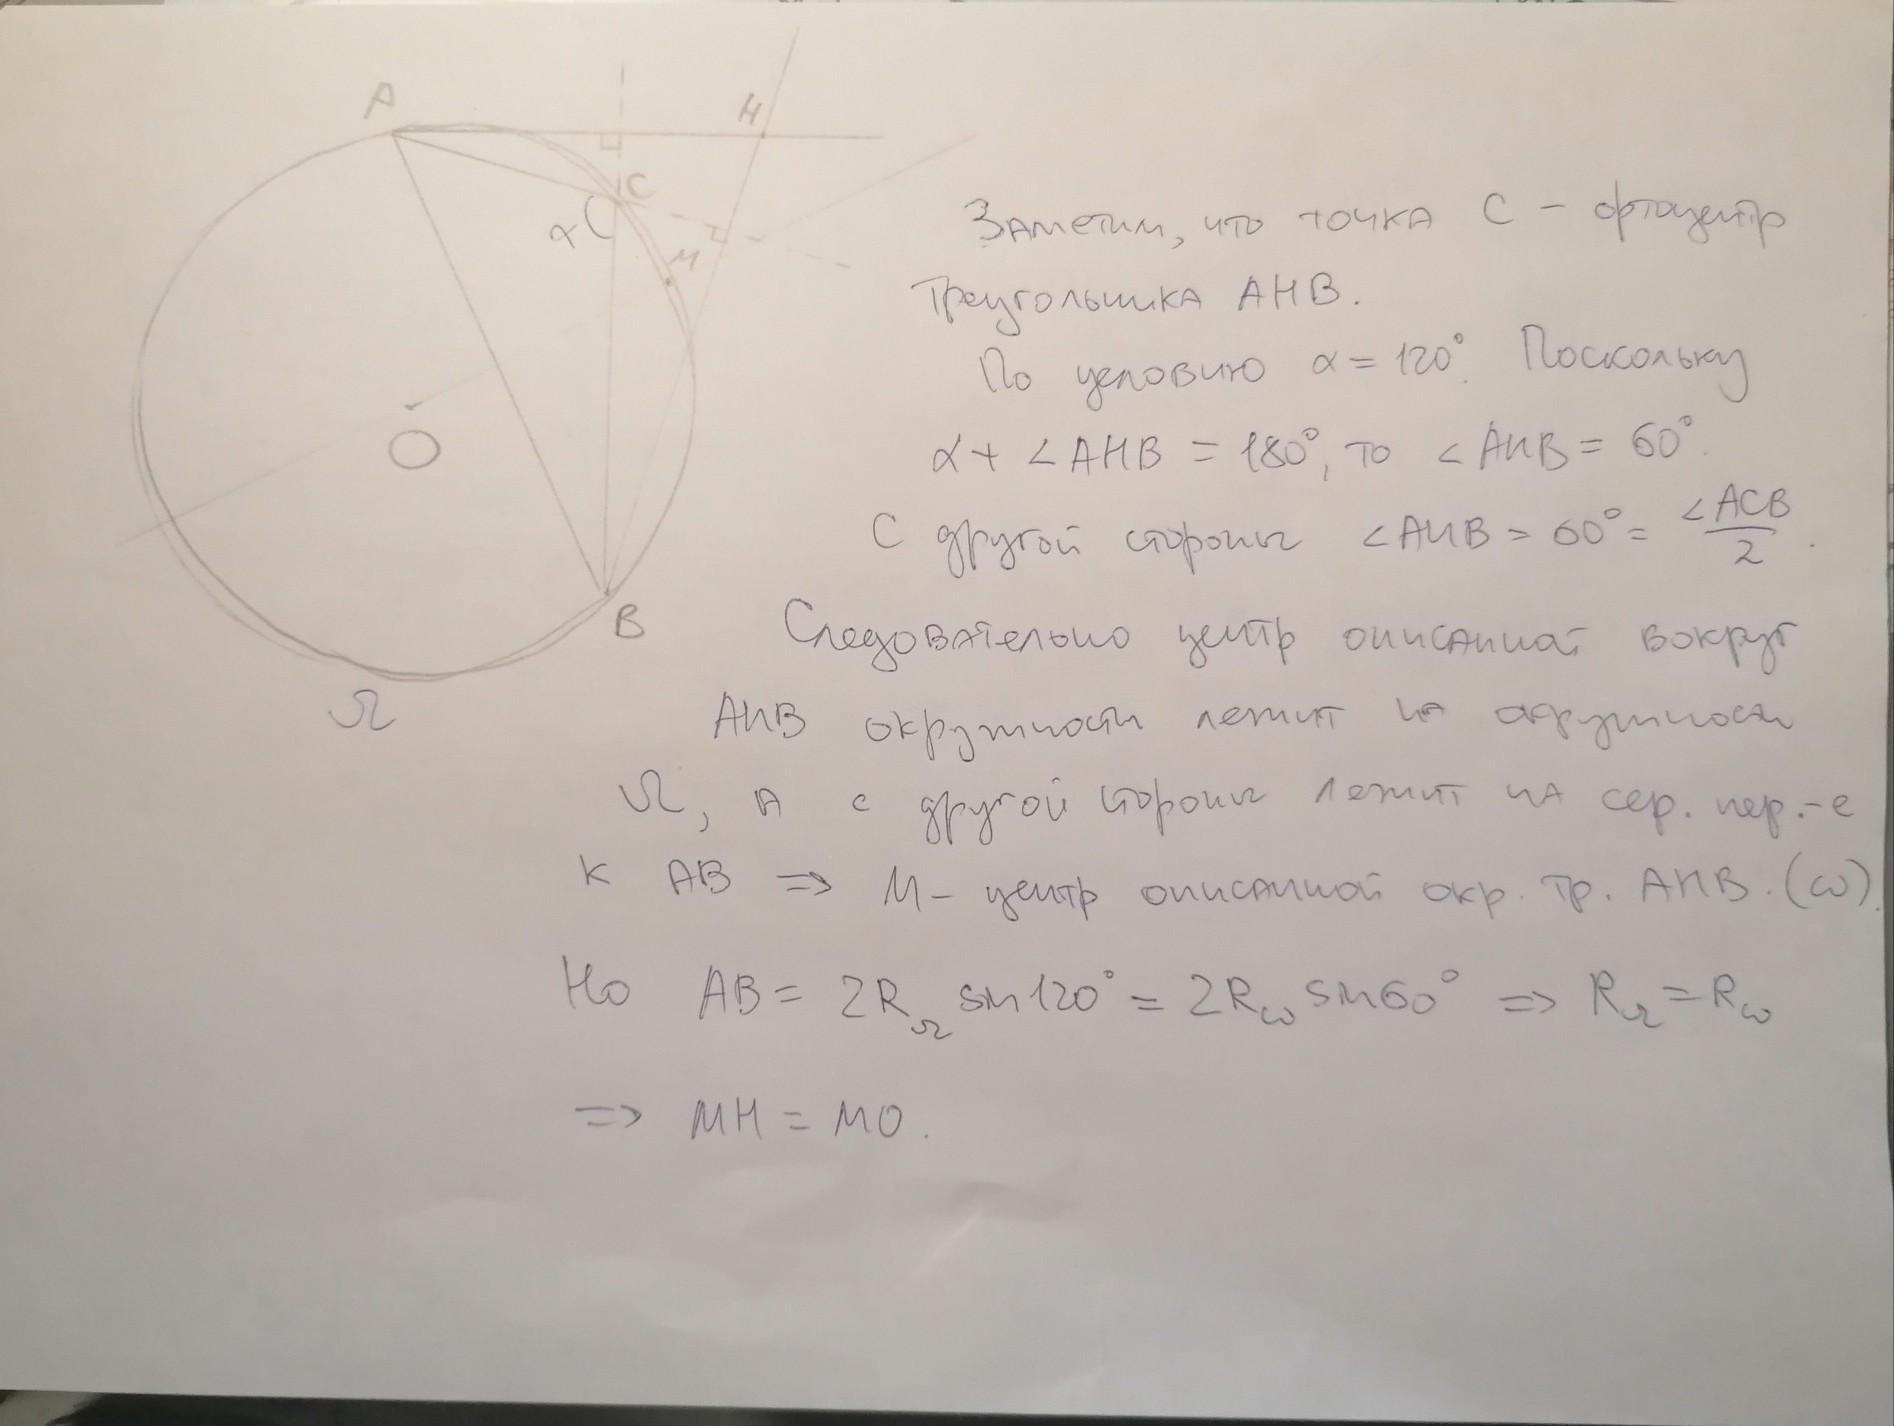 A
H
C
α
M
O
B
Ω
Заметим, что точка C – ортоцентр
треугольника AHB.
По условию α = 120°. Поскольку
α + ∠AHB = 180°, то ∠AHB = 60°.
С другой стороны ∠AHB = 60° = ∠ACB/2.
Следовательно центр описанной вокруг
AHB окружности лежит на окружности
Ω, а с другой стороны лежит на сер. пер.-е
к AB ⇒ M – центр описанной окр. тр. AHB. (ω).
Но AB = 2R_Ω sin120° = 2R_ω sin60° ⇒ R_Ω = R_ω
⇒ MH = MO.